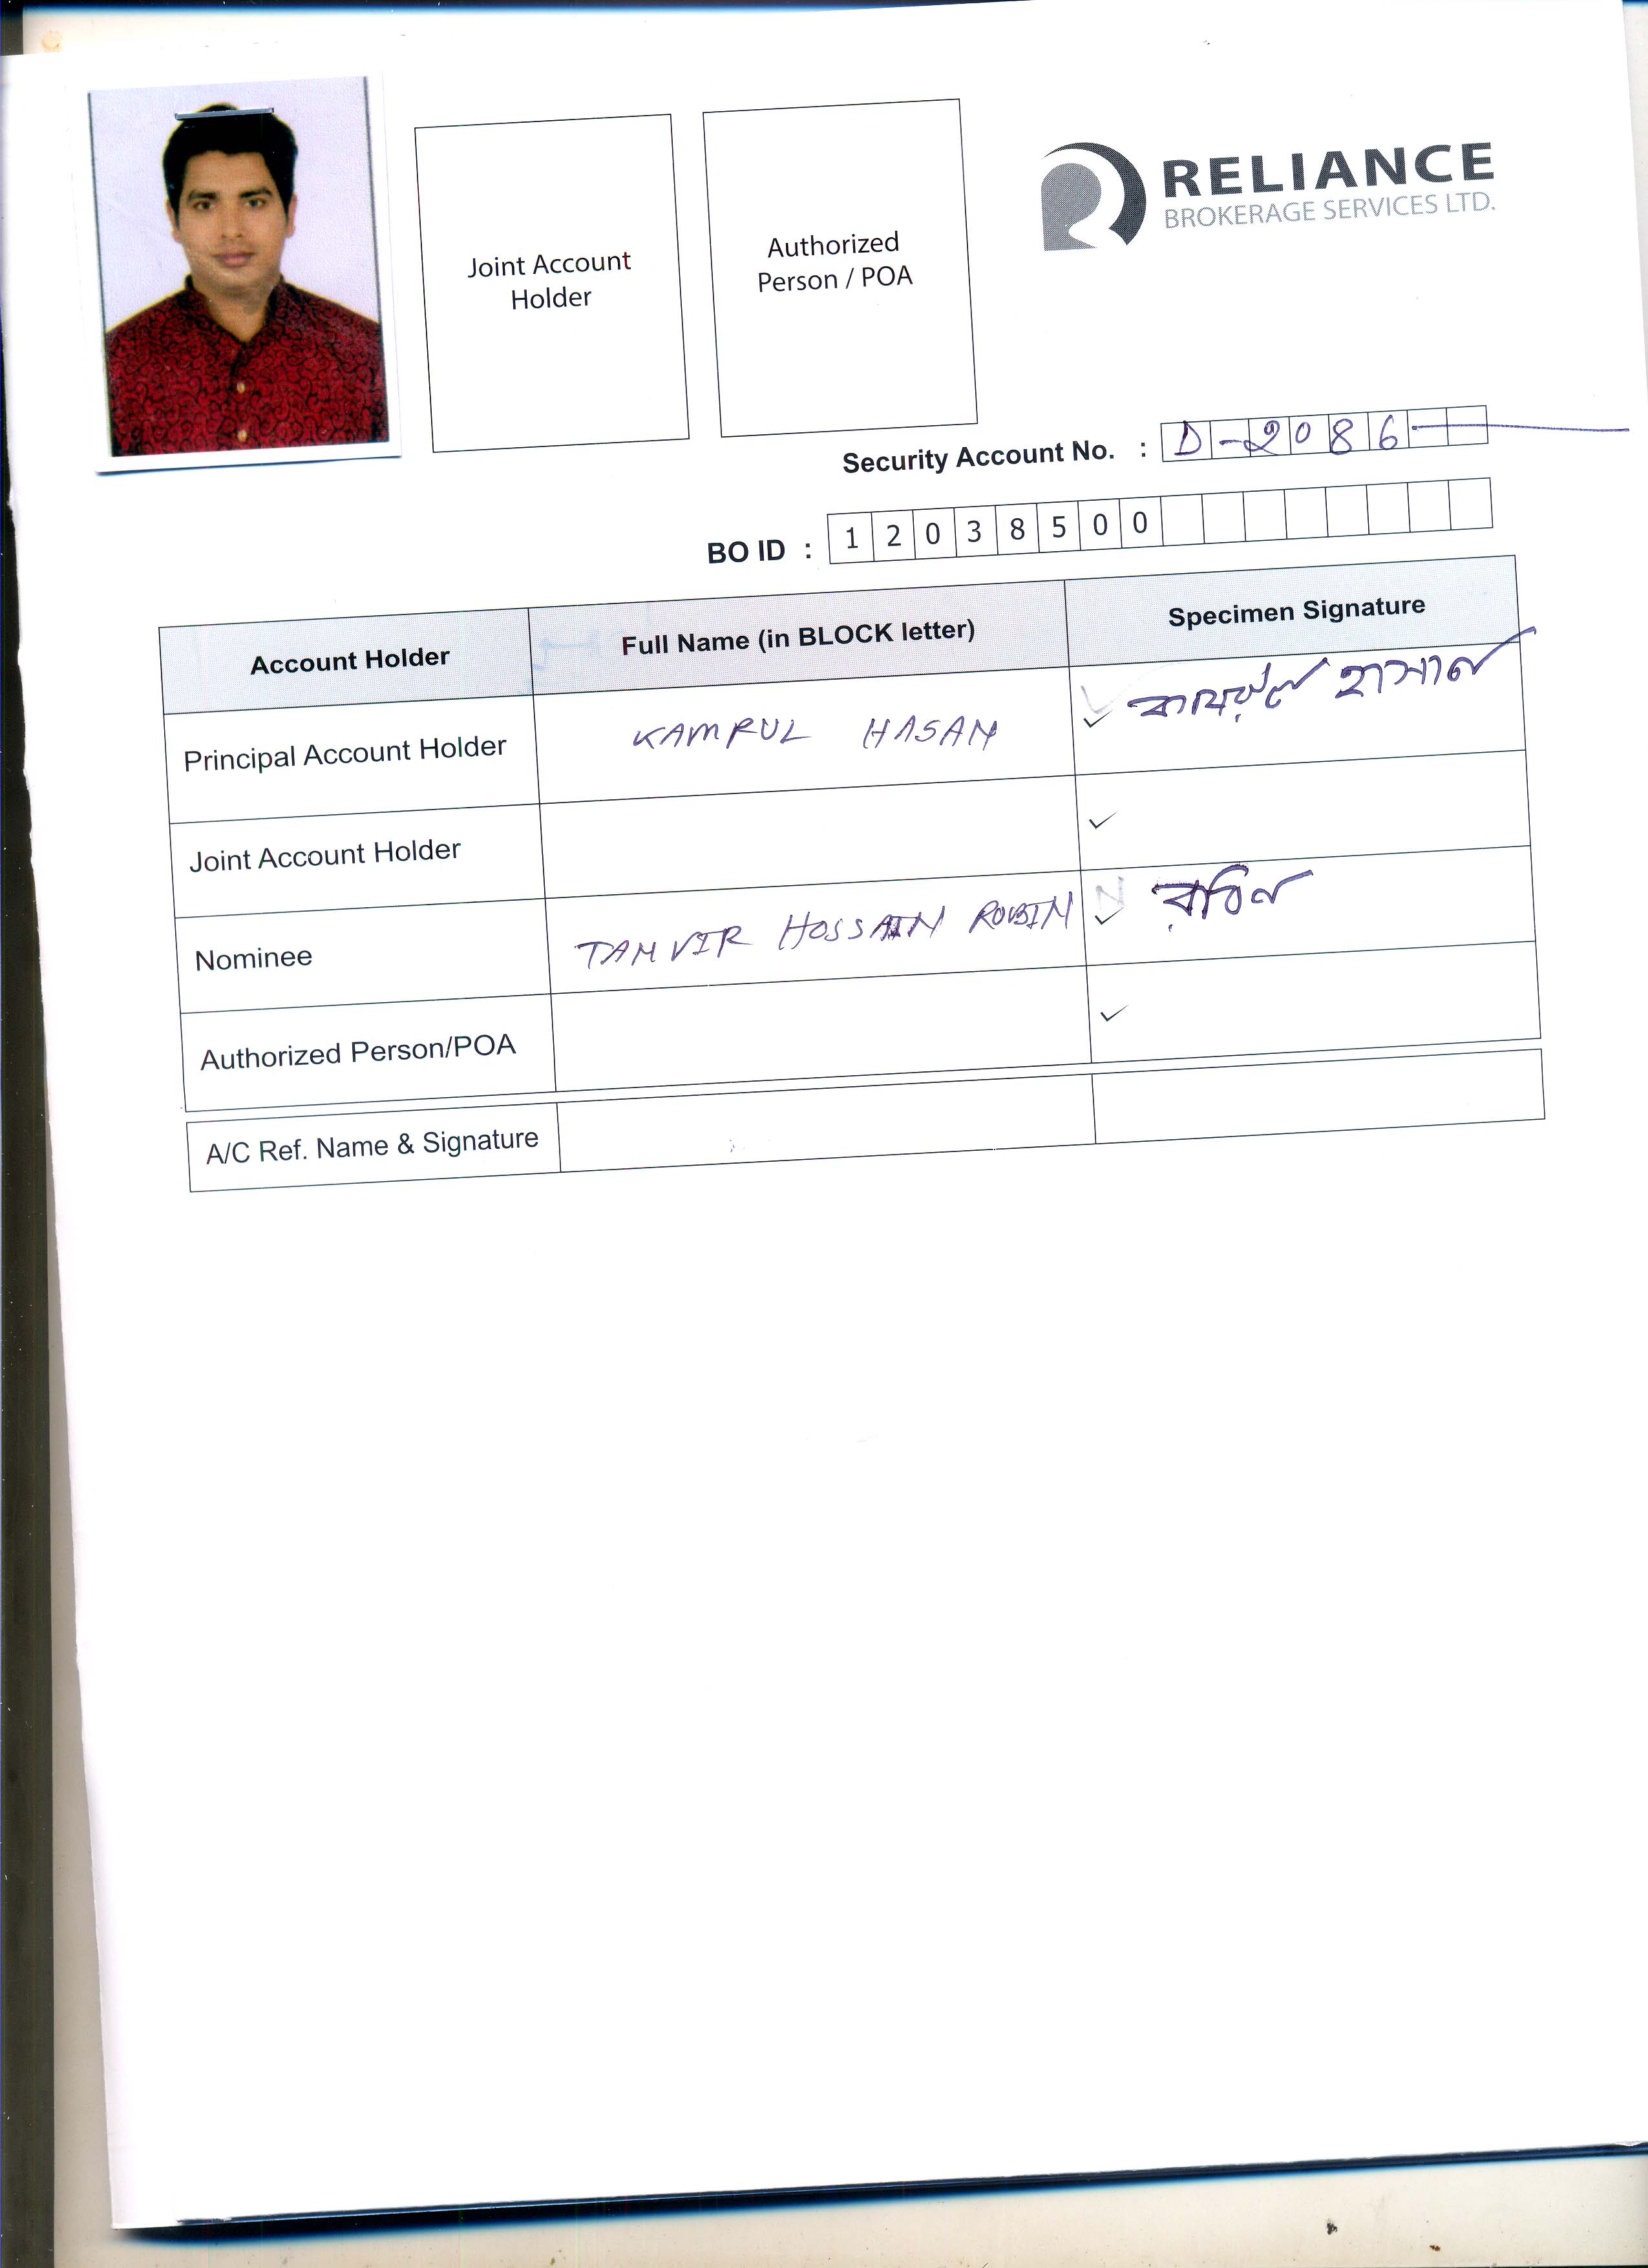 RELIANCE
BROKERAGE SERVICES LTD.
Joint Account
Holder
Authorized
Person / POA
Security Account No. : D-2086
BO ID : 12038500
Account Holder Full Name (in BLOCK letter) Specimen Signature
Principal Account Holder KAMRUL HASAN কামরুল হাসান
Joint Account Holder
Nominee TANVIR HOSSAIN ROBIN রবিন
Authorized Person/POA
A/C Ref. Name & Signature